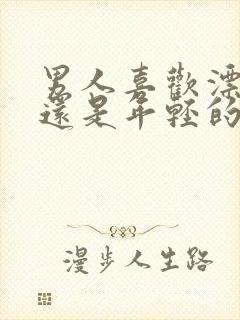 男人喜歡漂
還是年輕的
漫步人生路